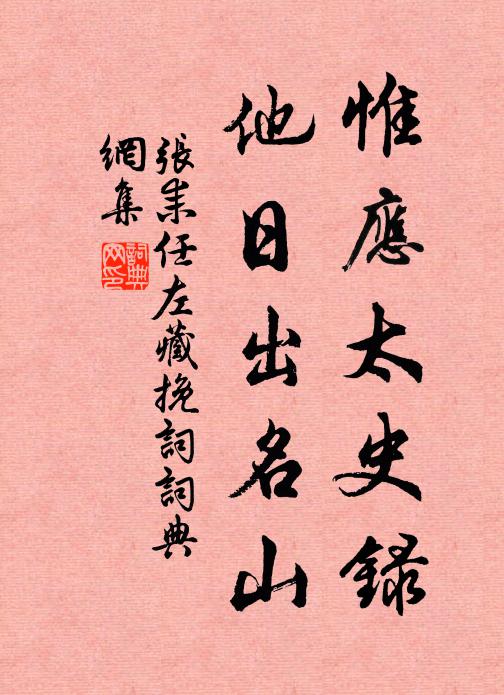 惟應太史錄
他日出名山
張耒任左藏挽詞詞典
網集
詞典
网印